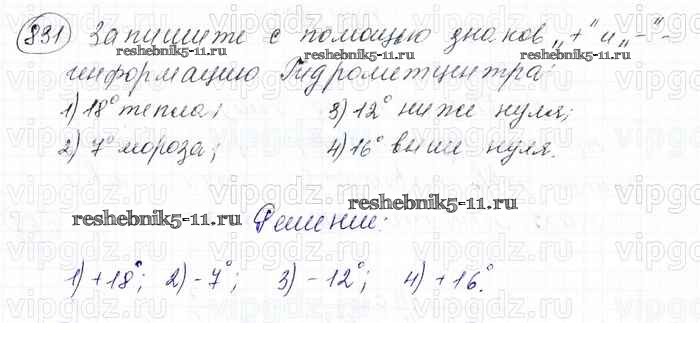 831 Запишите с помощью знаков „+" и „-"-
информацию Гидрометцентра:
1) 18° тепла; 3) 12° ниже нуля;
2) 7° мороза; 4) 16° выше нуля.
Решение:
1) +18°; 2) -7°; 3) -12°; 4) +16°.
reshebnik5-11.ru
reshebnik5-11.ru
reshebnik5-11.ru
reshebnik5-11.ru
vipgdz.ru